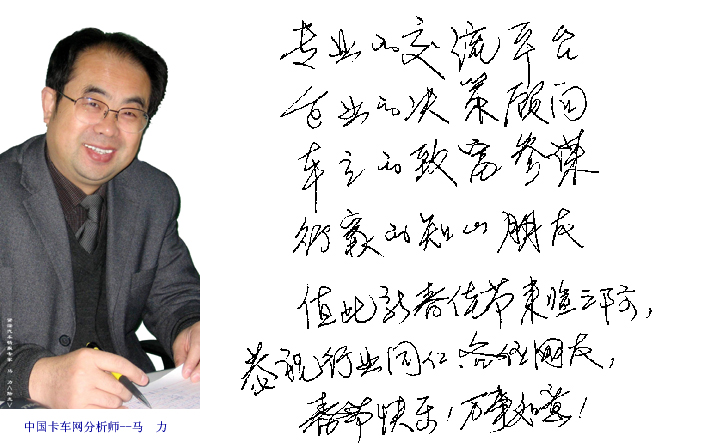 专业的交流平台
企业的决策顾问
车主的致富参谋
行家的知心朋友
值此新春佳节来临之际,
恭祝行业同仁、各位网友,
春节快乐!万事如意!
中国卡车网分析师--马 力